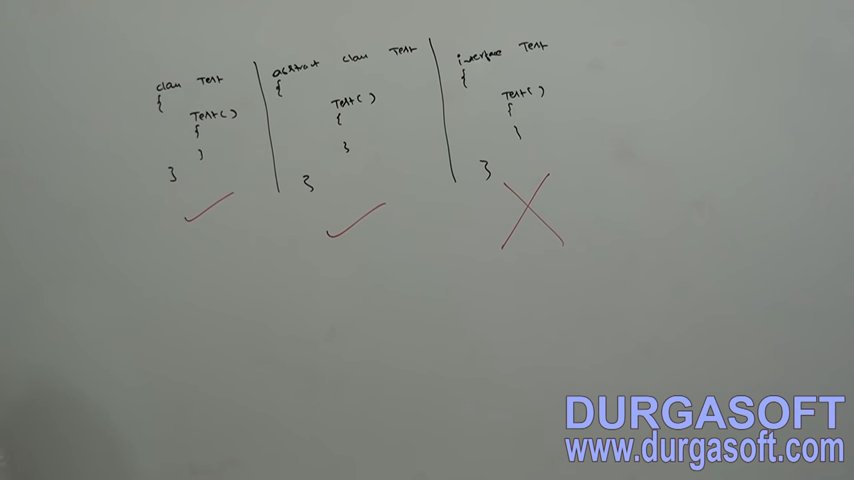 class Test
{
Test( )
{
}
}
abstract class Test
{
Test( )
{
}
}
interface Test
{
Test( )
{
}
}
DURGASOFT
www.durgasoft.com